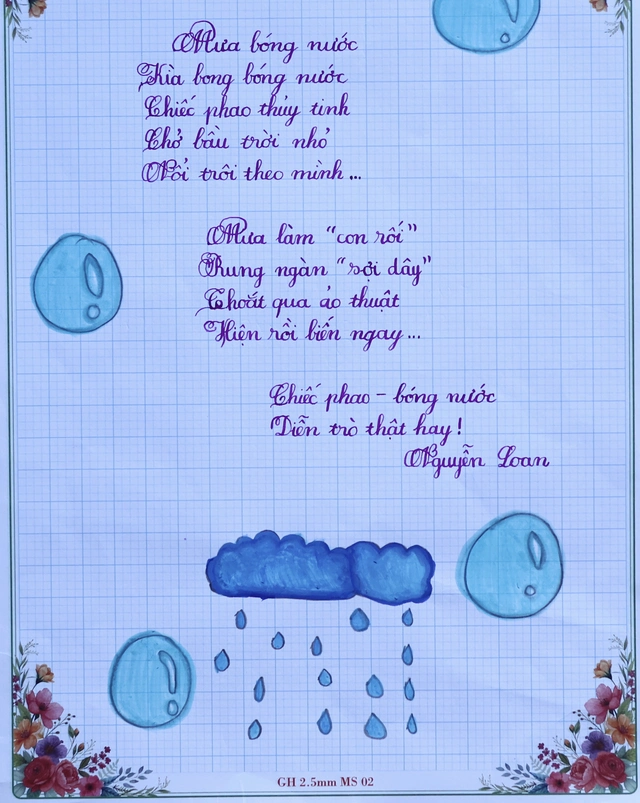 Mưa bóng nước
Kìa bong bóng nước
Chiếc phao thủy tinh
Chở bầu trời nhỏ
Nổi trôi theo mình...
Mưa làm "con rối"
Rung ngàn "sợi dây"
Thoắt qua ảo thuật
Hiện rồi biến ngay...
Chiếc phao - bóng nước
Diễn trò thật hay!
Nguyễn Loan
GH 2.5mm MS 02